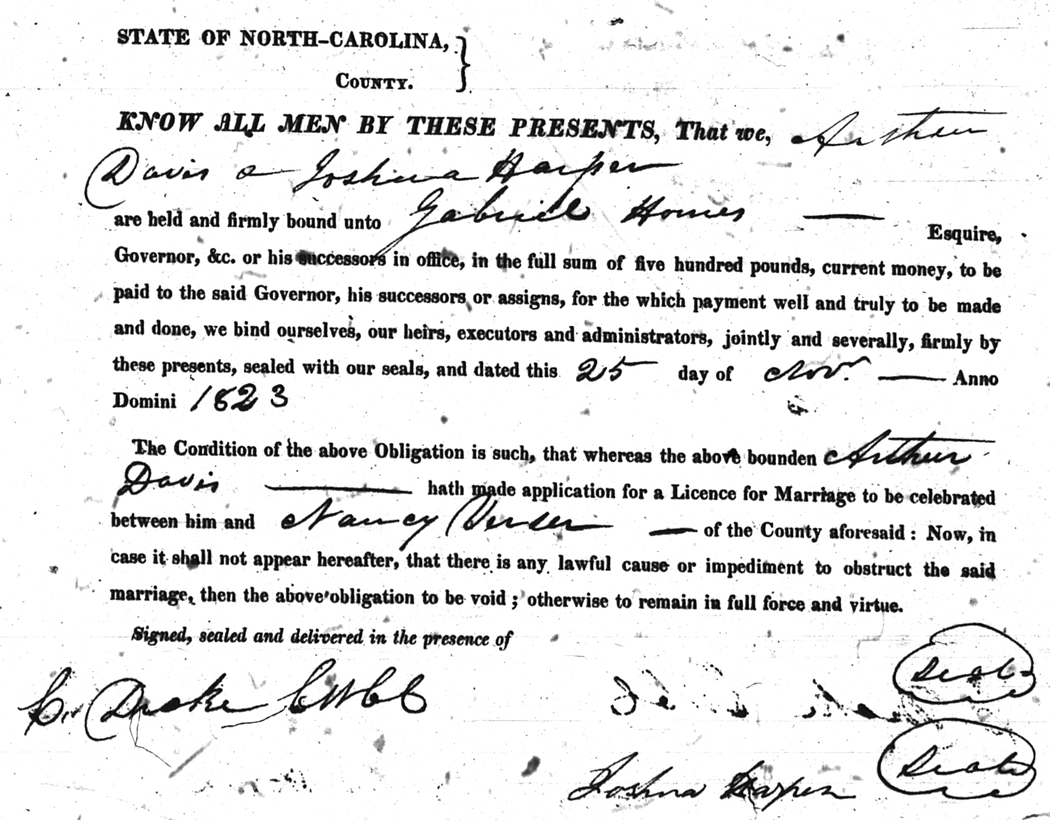 STATE OF NORTH-CAROLINA,
COUNTY.
KNOW ALL MEN BY THESE PRESENTS, That we, Arthur
Davis & Joshua Harper
are held and firmly bound unto Gabriel Homes
Esquire,
Governor, &c. or his successors in office, in the full sum of five hundred pounds, current money, to be
paid to the said Governor, his successors or assigns, for the which payment well and truly to be made
and done, we bind ourselves, our heirs, executors and administrators, jointly and severally, firmly by
these presents, sealed with our seals, and dated this 25 day of Nov. — Anno
Domini 1823
The Condition of the above Obligation is such, that whereas the above bounden Arthur
Davis — hath made application for a Licence for Marriage to be celebrated
between him and Nancy — of the County aforesaid: Now, in
case it shall not appear hereafter, that there is any lawful cause or impediment to obstruct the said
marriage, then the above obligation to be void; otherwise to remain in full force and virtue.
Signed, sealed and delivered in the presence of
Seal
Drake
Joshua Harper Seal